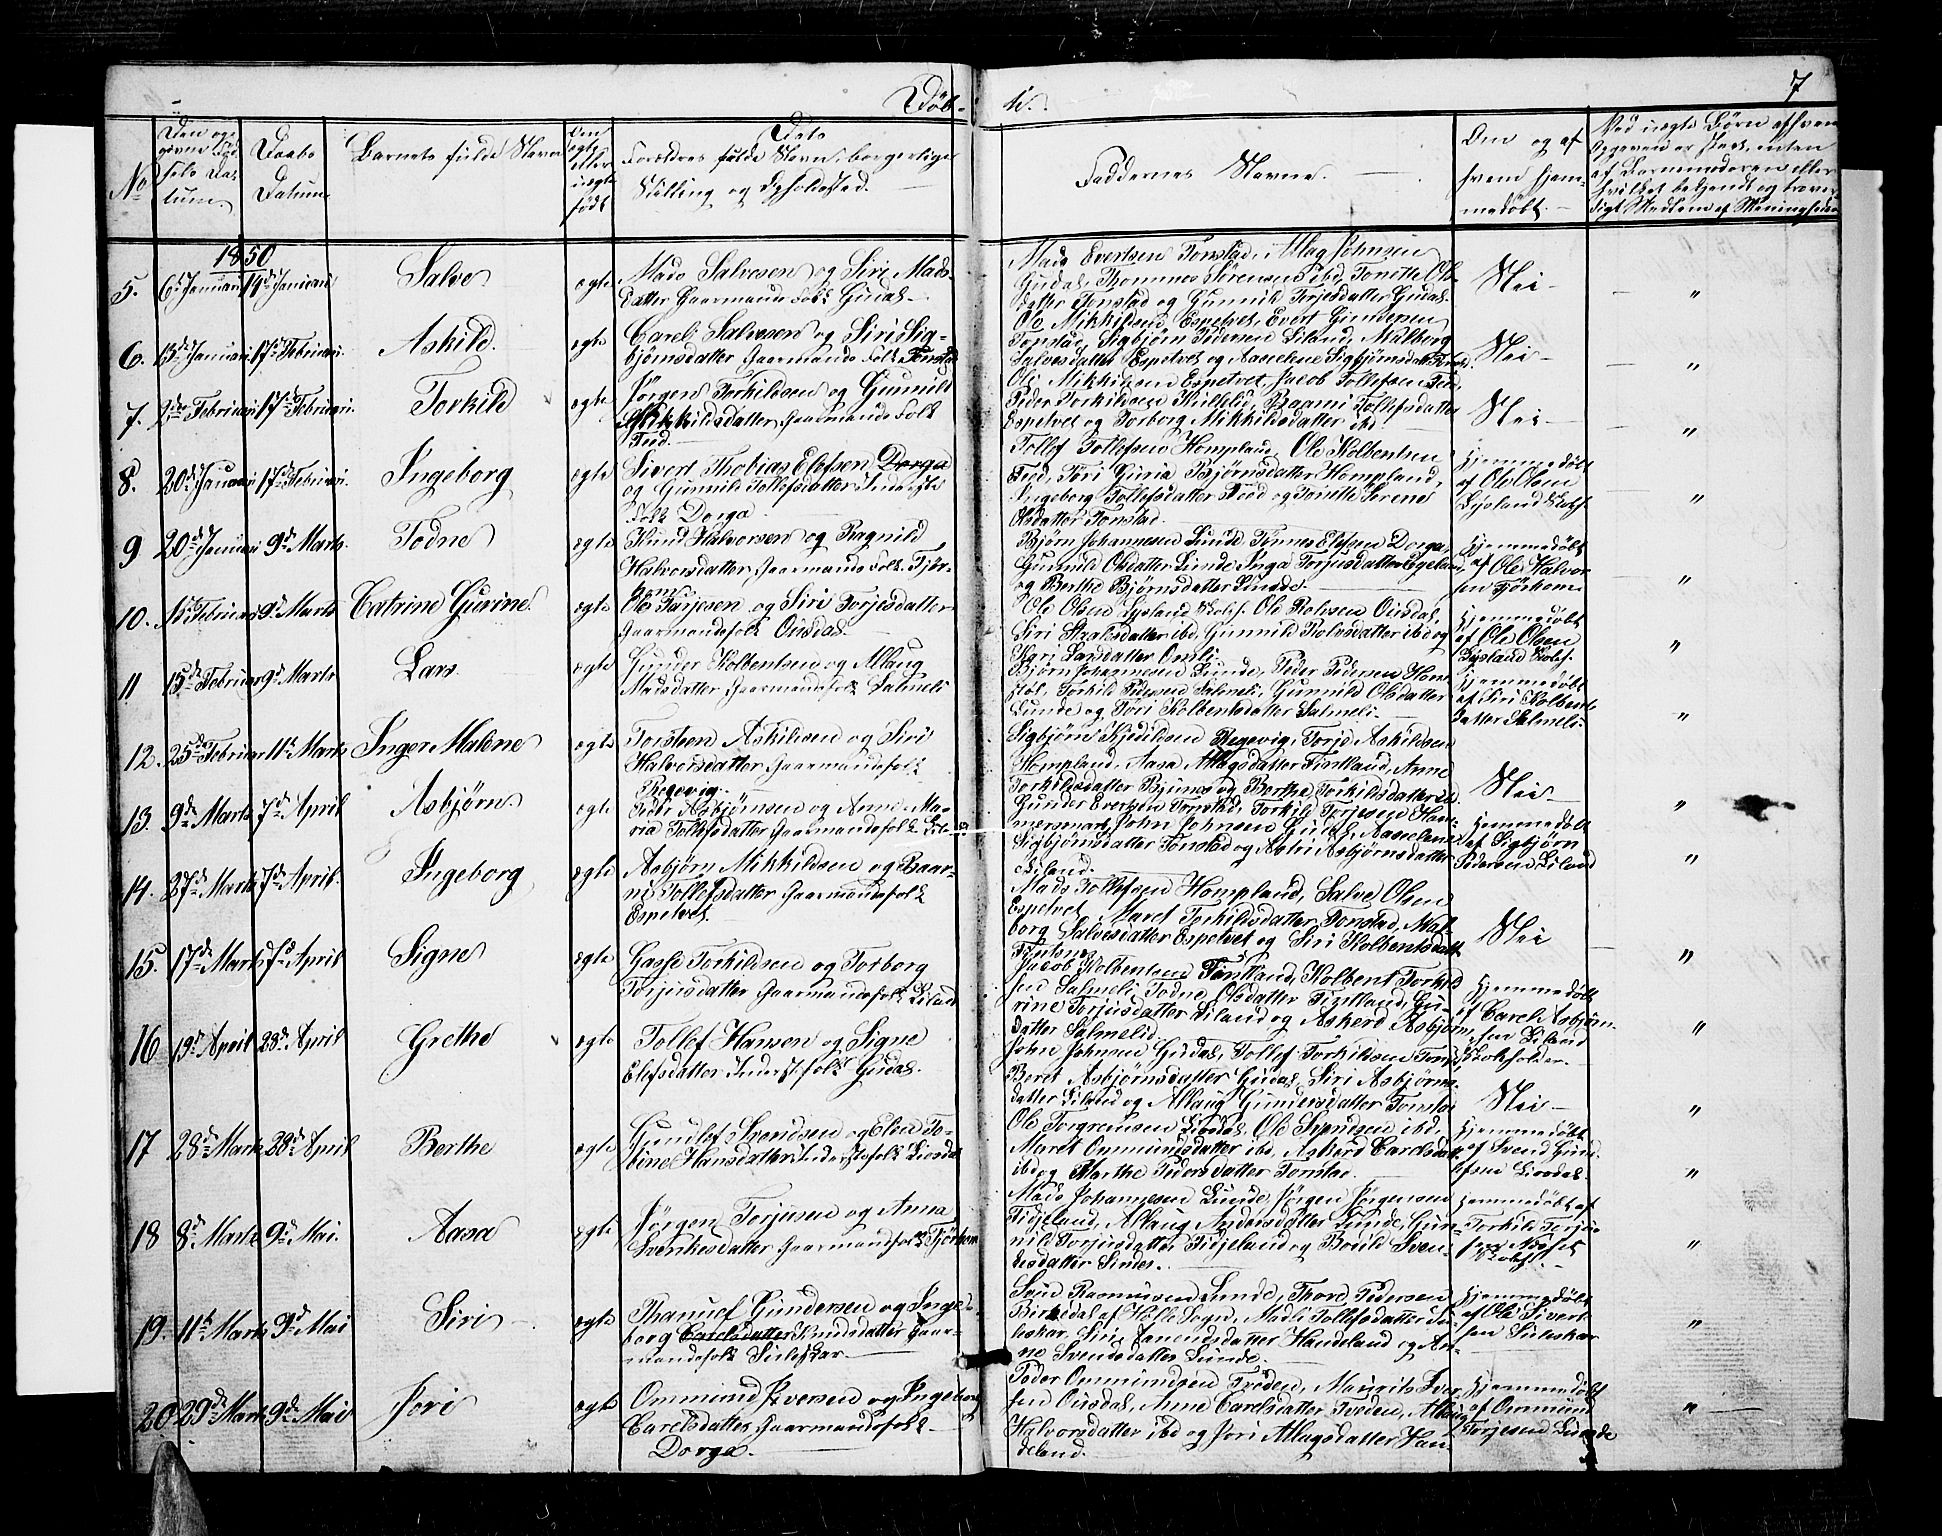 Døb-
te.
7
No
Den op-
givne Fød-
sels Da-
tum.
Daabs
Datum
Barnets fulde Navn
Om
ægte
eller
uægte
født
Dets
Forældres fulde Navn, borgerlige
Stilling og Opholdssted.
Faddernes Navne.
Om og af
hvem hjem-
medøbt.
Ved uægte Børn af hvem
Opgiven er skeet, enten
af Barnemoderen eller
hvilket bekjendt og trover-
digt Medlem af Menigheden
1850
5. 6d Januari 14d Januari Salve ægte
Mads Salvesen og Siri Mads-
datter Gaarmands Folk Gudal
Mads Evertsen Tonstad, Allag Johnsen
Gudal, Thommes Sörensen ibd, Tonette Ols-
datter Tonstad og Gunnild Torjesdatter Gudal
Nei "
6. 13d Januari 17d Februari Askild ægte
Carell Salvesen og Siri Sig-
bjørnsdatter Gaarmands Folk Tonstad
Ole Mikkildsen Espetvet, Evert Gundersen
Tonstad, Sigbjørn Pedersen Liland, Malborg
Salvesdatter Espetvet og Aaselene Sigbjørnsdatter
Nei "
7. 2den Februari 17d Februari Torkild ægte
Jørgen Torkildsen og Gunnild
Mikkildsdatter Gaarmands Folk
Fied.
Ole Mikkilsen Espetvet, Jacob Tollefsen Fied,
Peder Torkildsen Kullelid, Baarni Tollefsdatter
Espetvet og Torborg Mikkildsdatter ibd
Nei "
8. 20d Januari 17d Februari Ingeborg ægte
Sivert Thobias Elefsen Dorga
og Gunnild Tollefsdatter Inderste
Folk Dorga
Tollef Tollefsen Hompland, Ole Kolbentsen
Fied, Jori Guria Bjørnsdatter Hompland,
Ingeborg Tollefsdatter Fied og Tonette Serene
Olsdatter Tonstad
Hjemmedøbt
af Ole Olsen
Lysland Skolh.
"
9 20d Januari 9d Marts Todne ægte
Knud Halvorsen og Ragnild
Halvorsdatter Gaarmands Folk Tjør-
hom
Bjørn Johannesen Lunde, Tonnes Elefsen Dorga,
Gunnild Olsdatter Lunde, Inga Torjusdatter Egeland
og Berthe Bjørnsdatter Lunde
Hjemmedøbt
af Ole Halvor-
sen Tjørhom
"
10. 1ste Februar 9d Marts Catrine Gurine ægte
Ole Tarjesen og Siri Torjesdatter
Gaarmandsfolk Ousdal
Ole Olsen Lysland Skolh. Ole Rolvsen Ousdal,
Siri ibd, Gunnild Rolvsdatter ibd og
Kari Larsdatter Omli
Hjemmedøbt
af Ole Olsen
Lysland Skolh.
"
11 15d Februar 9d Marts Lars ægte
Gunder Kolbentsen og Allaug
Madsdatter Gaarmandsfolk Salmeli
Bjørn Johannesen Lunde, Peder Pedersen Hom-
stöl, Torkild Pedersen Salmeli, Gunnild Olsdatter
Lunde og Jøri Kolbentsdatter Salmeli
Hjemmedøbt
af Siri Kolbents-
datter Salmeli
"
12. 25d Februar 11te Marts Inger Malene ægte
Torsteen Askildsen og Siri
Halvorsdatter Gaarmandsfolk
Regevig
Sigbjørn Kjetilsen Regevig, Torje Askildsen
Hompland, Aasa Allagsdatter Fintland, Anne
Torkildsdatter og Berthe Torkildsdatter ibd.
Nei "
13. 9d Marts 7d April Asbjørn ægte
Peder Asbjørnsen og Anne Ma-
ria Tollefsdatter Gaarmandsfolk Liland
Gunder Evertsen Tonstad, Torkild Torjesen Ham-
mersmark, John Johnsen Gudal, Aaselene
Sigbjørnsdatter Tonstad og Astri Asbjørnsdatter
Liland.
Hjemmedøbt
af Sigbjørn
Pedersen Liland
"
14. 27d Marts 7d April. Ingeborg ægte
Asbjørn Mikkildsen og Baar-
ni Tollefsdatter Gaarmandsfolk
Espetvet
Mads Tollefsen Hompland, Salve Olsen
Espetvet, Maret Torkildsdatter Tonstad, Mal-
borg Salvesdatter Espetvet og Siri Kolbentsdatter
Nei "
15. 17d Marts 7d April Signe ægte
Gasse Torkildsen og Torborg
Torjusdatter Gaarmandsfolk Liland
Jacob Kolbentsen Fintland, Kolbent Torkild-
sen Salmeli, Todne Olsdatter Fintland, Gu-
rine Torjusdatter Liland og Askerd Asbjørns-
datter Salmeli
Hjemmedøbt
af Carel Asbjørn-
sen Liland
Skoleholder
"
16 19d April 28d April Grethe ægte
Tollef Hansen og Signe
Elefsdatter Inderstfolk Gudal.
John Johnsen Gudal, Tollef Torkildsen Tonstad,
Beret Asbjørnsdatter Gudal, Siri Asbjørns-
datter Liland og Allaug Gundersdatter Tonstad
Nei "
17 28d Marts 28d April Berthe ægte
Gundlef Svendsen og Elen To-
bine Hansdatter Inderstefolk Liosdal
Ole Torgrimsen Liosdal, Ole Svendsen ibd,
Maret Ommundsdatter ibd, Askerd Carelsdatter
ibd og Marthe Pedersdatter Tonstad
Hjemmedøbt
af Svend Gund-
lefsen Liosdal
"
18 8d Marts 9d Mai. Aasa ægte
Jørgen Torjusen og Anna
Svenkesdatter Gaarmandsfolk Tjørhom
Mads Johannesen Lunde, Jørgen Jørgensen
Fidjeland, Allaug Andersdatter Lunde, Gun-
nild Torjusdatter Fidjeland og Bodild Sven-
kesdatter Sines.
Hjemmedøbt af
Torkild Torju-
sen
Skolh.
"
19. 11te Marts 9d Mai Siri ægte
Thanuef Gundersen og Inge-
borg Carelsdatter Knudsdatter Gaar-
mandsfolk Sirleskar
Rasmusen Lunde, Thore Pedersen
Birkedal af Hölle Sogn, Mali Tollefsdatter Si-
leskar, Siri Haneland og An-
ne Svendsdatter Lunde.
Hjemmedøbt
af Ole Sivert-
sen Sirleskar
"
20 29d Marts 9d Mai Jøri ægte
Ommund Iversen og Ingeborg
Carelsdatter Gaarmandsfolk
Dorga.
Peder Ommundsen Tveden, Maurits Iver-
sen Ousdal, Anne Carelsdatter Tveden, Allaug
Halvorsdatter ibd og Jøri Allagsdatter Han-
deland.
Hjemmedøbt
af Ommund
Torjesen
"